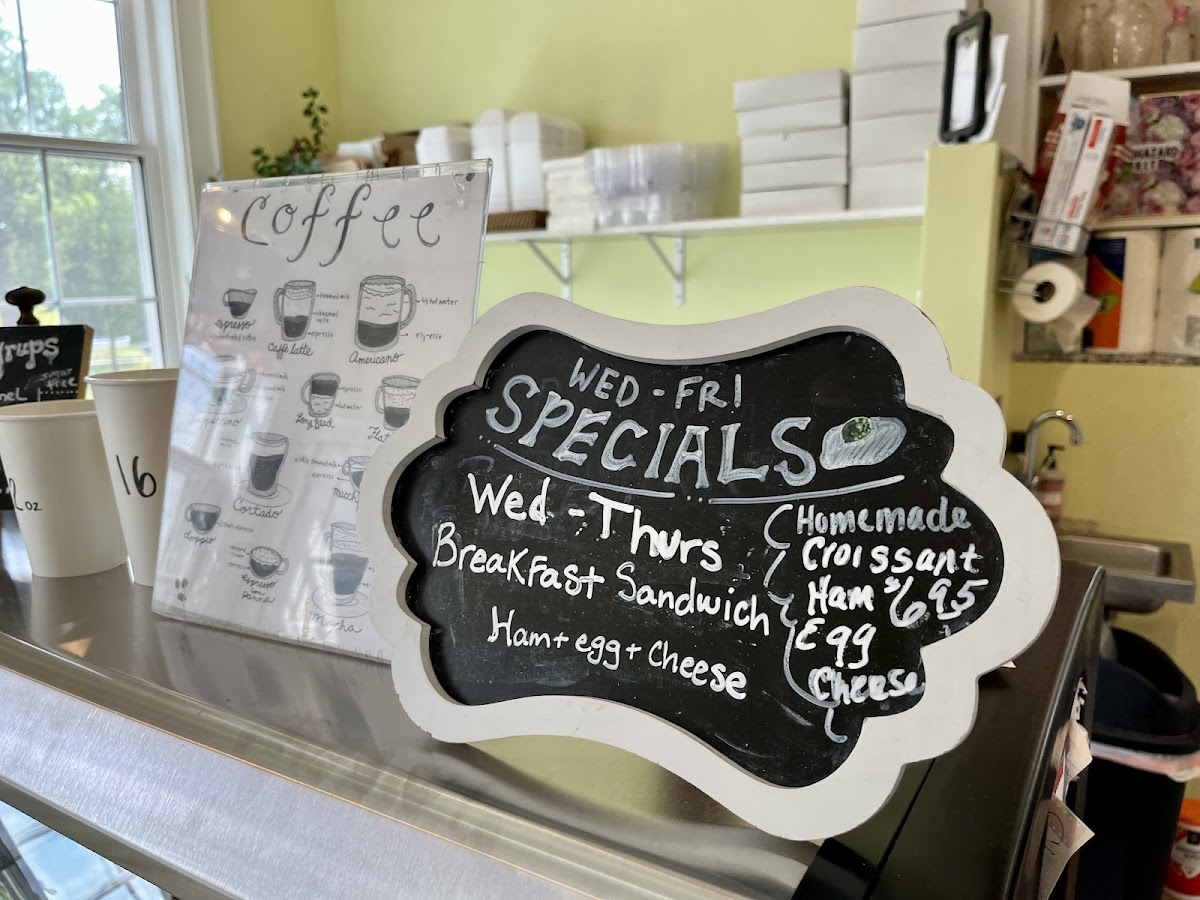 Coffee
espresso
steamed milk
espresso
Caffe Latte
hot water
Americano
espresso
hot water
Long Black
Cortado
Macc
doppio
espresso
con
panna
Mocha
rups
sugar
free
oz
16
WED - FRI
SPECIALS
Wed - Thurs
BreaKFast Sandwich
Ham + egg + Cheese
Homemade
Croissant
Ham $6.95
Egg
Cheese